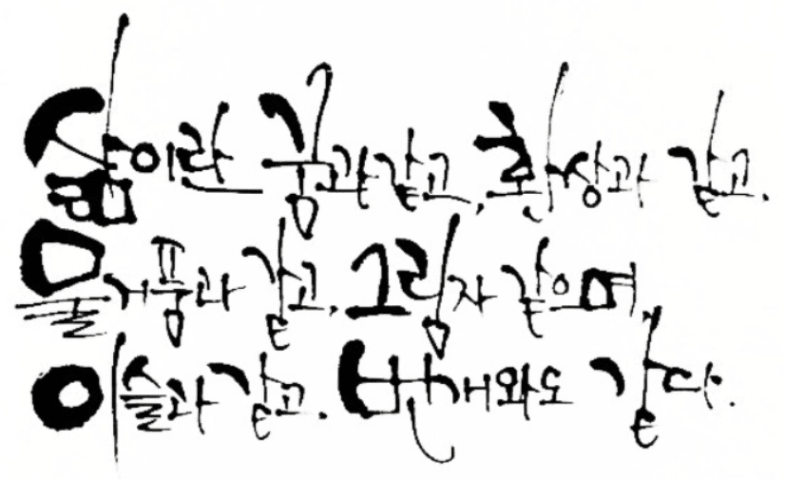 삶이란 꿈과 같고, 환상과 같고.
물거품과 같고, 그림자 같으며,
이슬과 같고, 번개와도 같다.